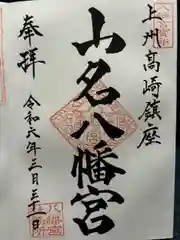 上州高崎鎮座
山名八幡宮
奉拝
令和六年三月三十一日